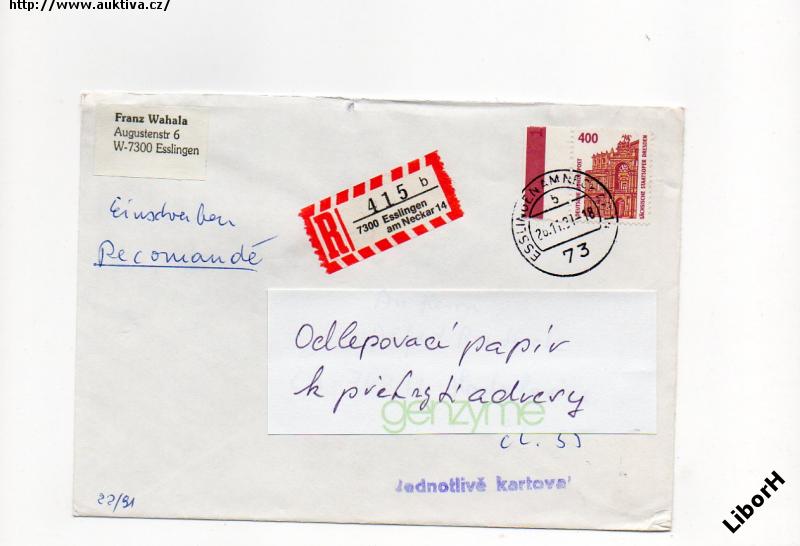 http://www.auktiva.cz/
Franz Wahala
Augustenstr 6
W-7300 Esslingen
400
DEUTSCHE BUNDESPOST
SÄCHSISCHE STAATSOPER DRESDEN
415 b
R
7300 Esslingen
am Neckar 14
ESSLINGEN AM NECKAR
b
26.11.91-18
73
Einschreiben
Recomandé
Odlepovací papír
k překrytí adresy
genzyme
Jednotlivě kartova
22/91
LiborH